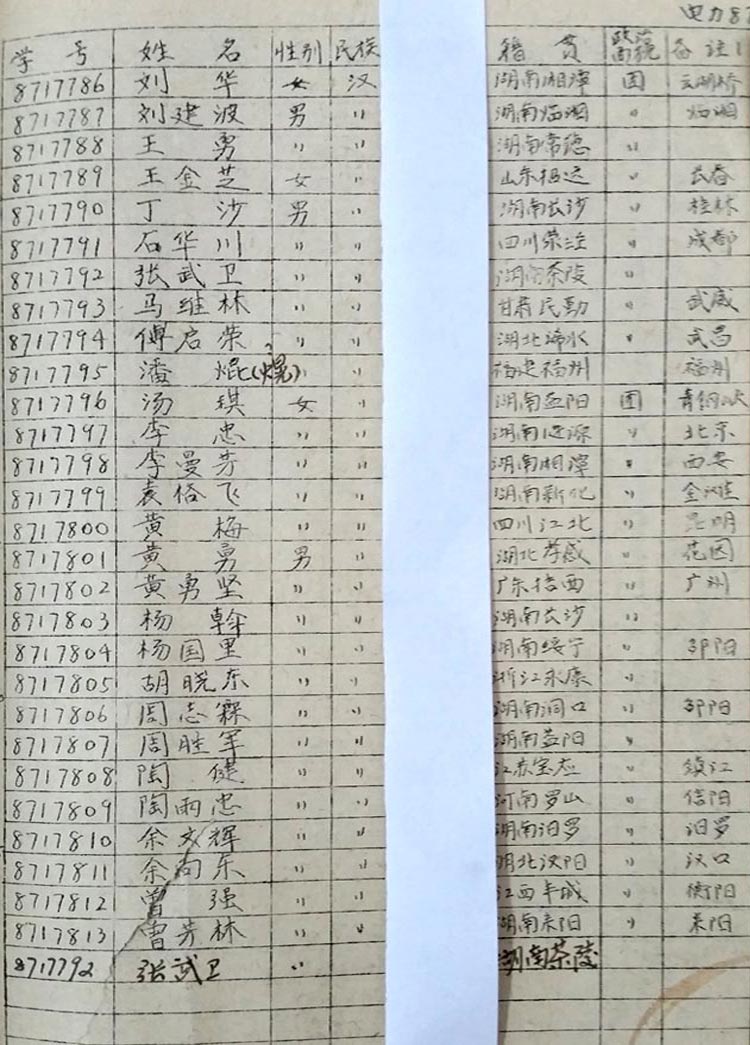 电力8
学号 姓名 性别 民族 籍贯 政治面貌 备注
8717786 刘华 女 汉 湖南湘潭 团 云湖桥
8717787 刘建波 男 〃 湖南临湘 〃 临湘
8717788 王勇 〃 〃 湖南常德 〃
8717789 王金芝 女 〃 山东招远 〃 长春
8717790 丁沙 男 〃 湖南长沙 〃 桂林
8717791 石华川 〃 〃 四川荣 〃 成都
8717792 张武卫 〃 〃 湖南茶陵 〃
8717793 马维林 〃 〃 甘肃民勤 〃 武威
8717794 傅启荣 〃 〃 湖北浠水 〃 武昌
8717795 潘焜(焜?) 〃 〃 福建福州 福州
8717796 汤琪 女 〃 湖南益阳 团 青铜峡
8717797 李忠 〃 〃 湖南涟源 〃 北京
8717798 李曼芳 〃 〃 湖南湘潭 〃 西安
8717799 袁飞 〃 〃 湖南新化 〃 金滩
8717800 黄梅 〃 〃 四川江北 〃 昆明
8717801 黄勇 男 〃 湖北孝感 〃 花园
8717802 黄勇坚 〃 〃 广东西 〃 广州
8717803 杨斡 〃 〃 湖南长沙 〃
8717804 杨国里 〃 〃 湖南绥宁 〃 邵阳
8717805 胡晓东 〃 〃 浙江永康 〃
8717806 周志霖 〃 〃 湖南洞口 〃 邵阳
8717807 周胜军 〃 〃 湖南益阳 〃
8717808 陶健 〃 〃 江苏宝应 〃 镇江
8717809 陶雨忠 〃 〃 河南罗山 〃 信阳
8717810 余文辉 〃 〃 湖南汨罗 〃 汨罗
8717811 余向东 〃 〃 湖北汉阳 〃 汉口
8717812 曾强 〃 〃 江西丰城 〃 衡阳
8717813 曾芳林 〃 〃 湖南耒阳 〃 耒阳
8717792 张武卫 〃 湖南茶陵